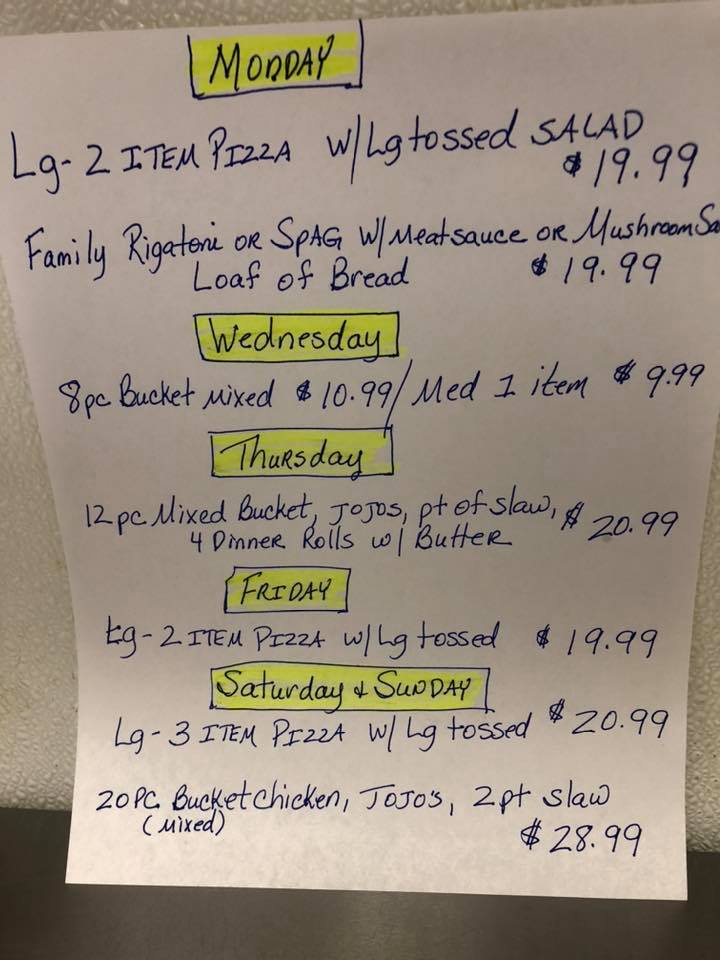 MONDAY
Lg-2 ITEM PIZZA W/Lg tossed SALAD
$19.99
Family Rigatoni OR SPAG W/Meatsauce OR Mushroom Sa
Loaf of Bread $19.99
Wednesday
8pc Bucket Mixed $10.99/Med 1 item $9.99
Thursday
12pc Mixed Bucket, JoJos, pt of slaw, $20.99
4 Dinner Rolls w/ Butter
FRIDAY
Lg-2 ITEM PIZZA w/Lg tossed $19.99
Saturday & SUNDAY
Lg-3 ITEM PIZZA W/ Lg tossed $20.99
20PC Bucket chicken, JoJo's, 2pt slaw
(Mixed) $28.99